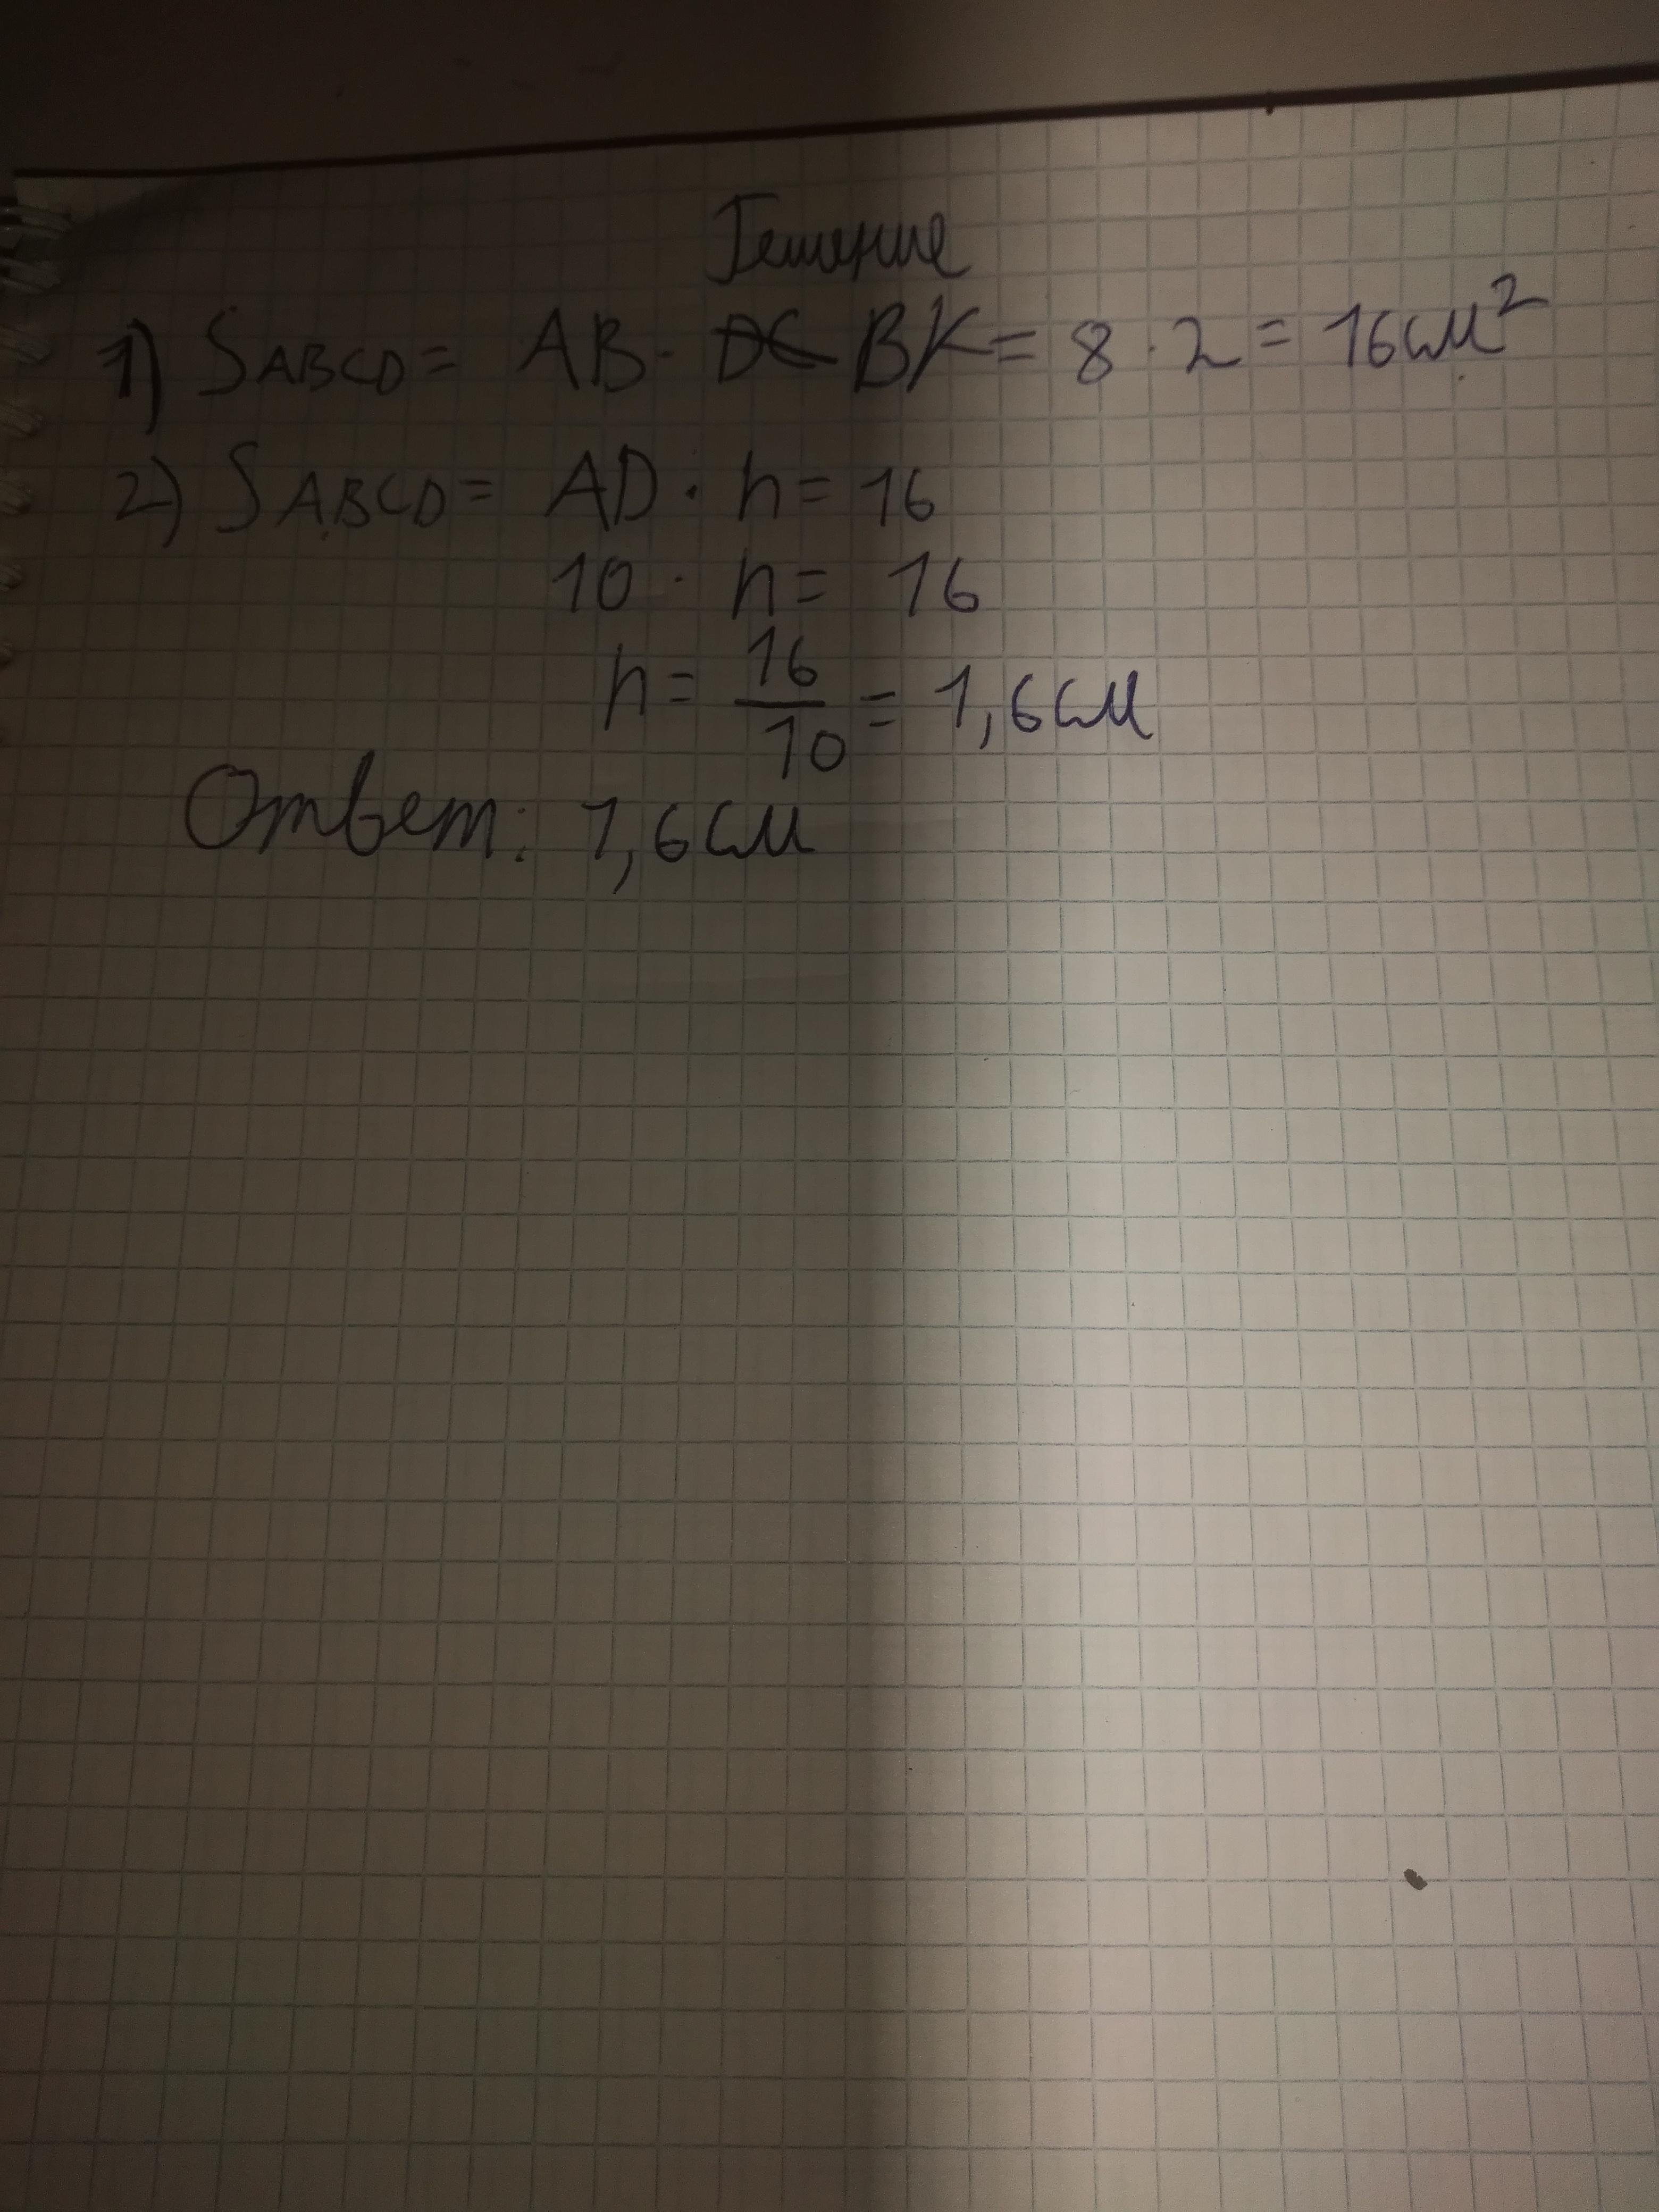 Решение
1) SABCD = AB · BK = 8 · 2 = 16см²
2) SABCD = AD · h = 16
10 · h = 16
h = 16/10 = 1,6см
Ответ: 1,6см